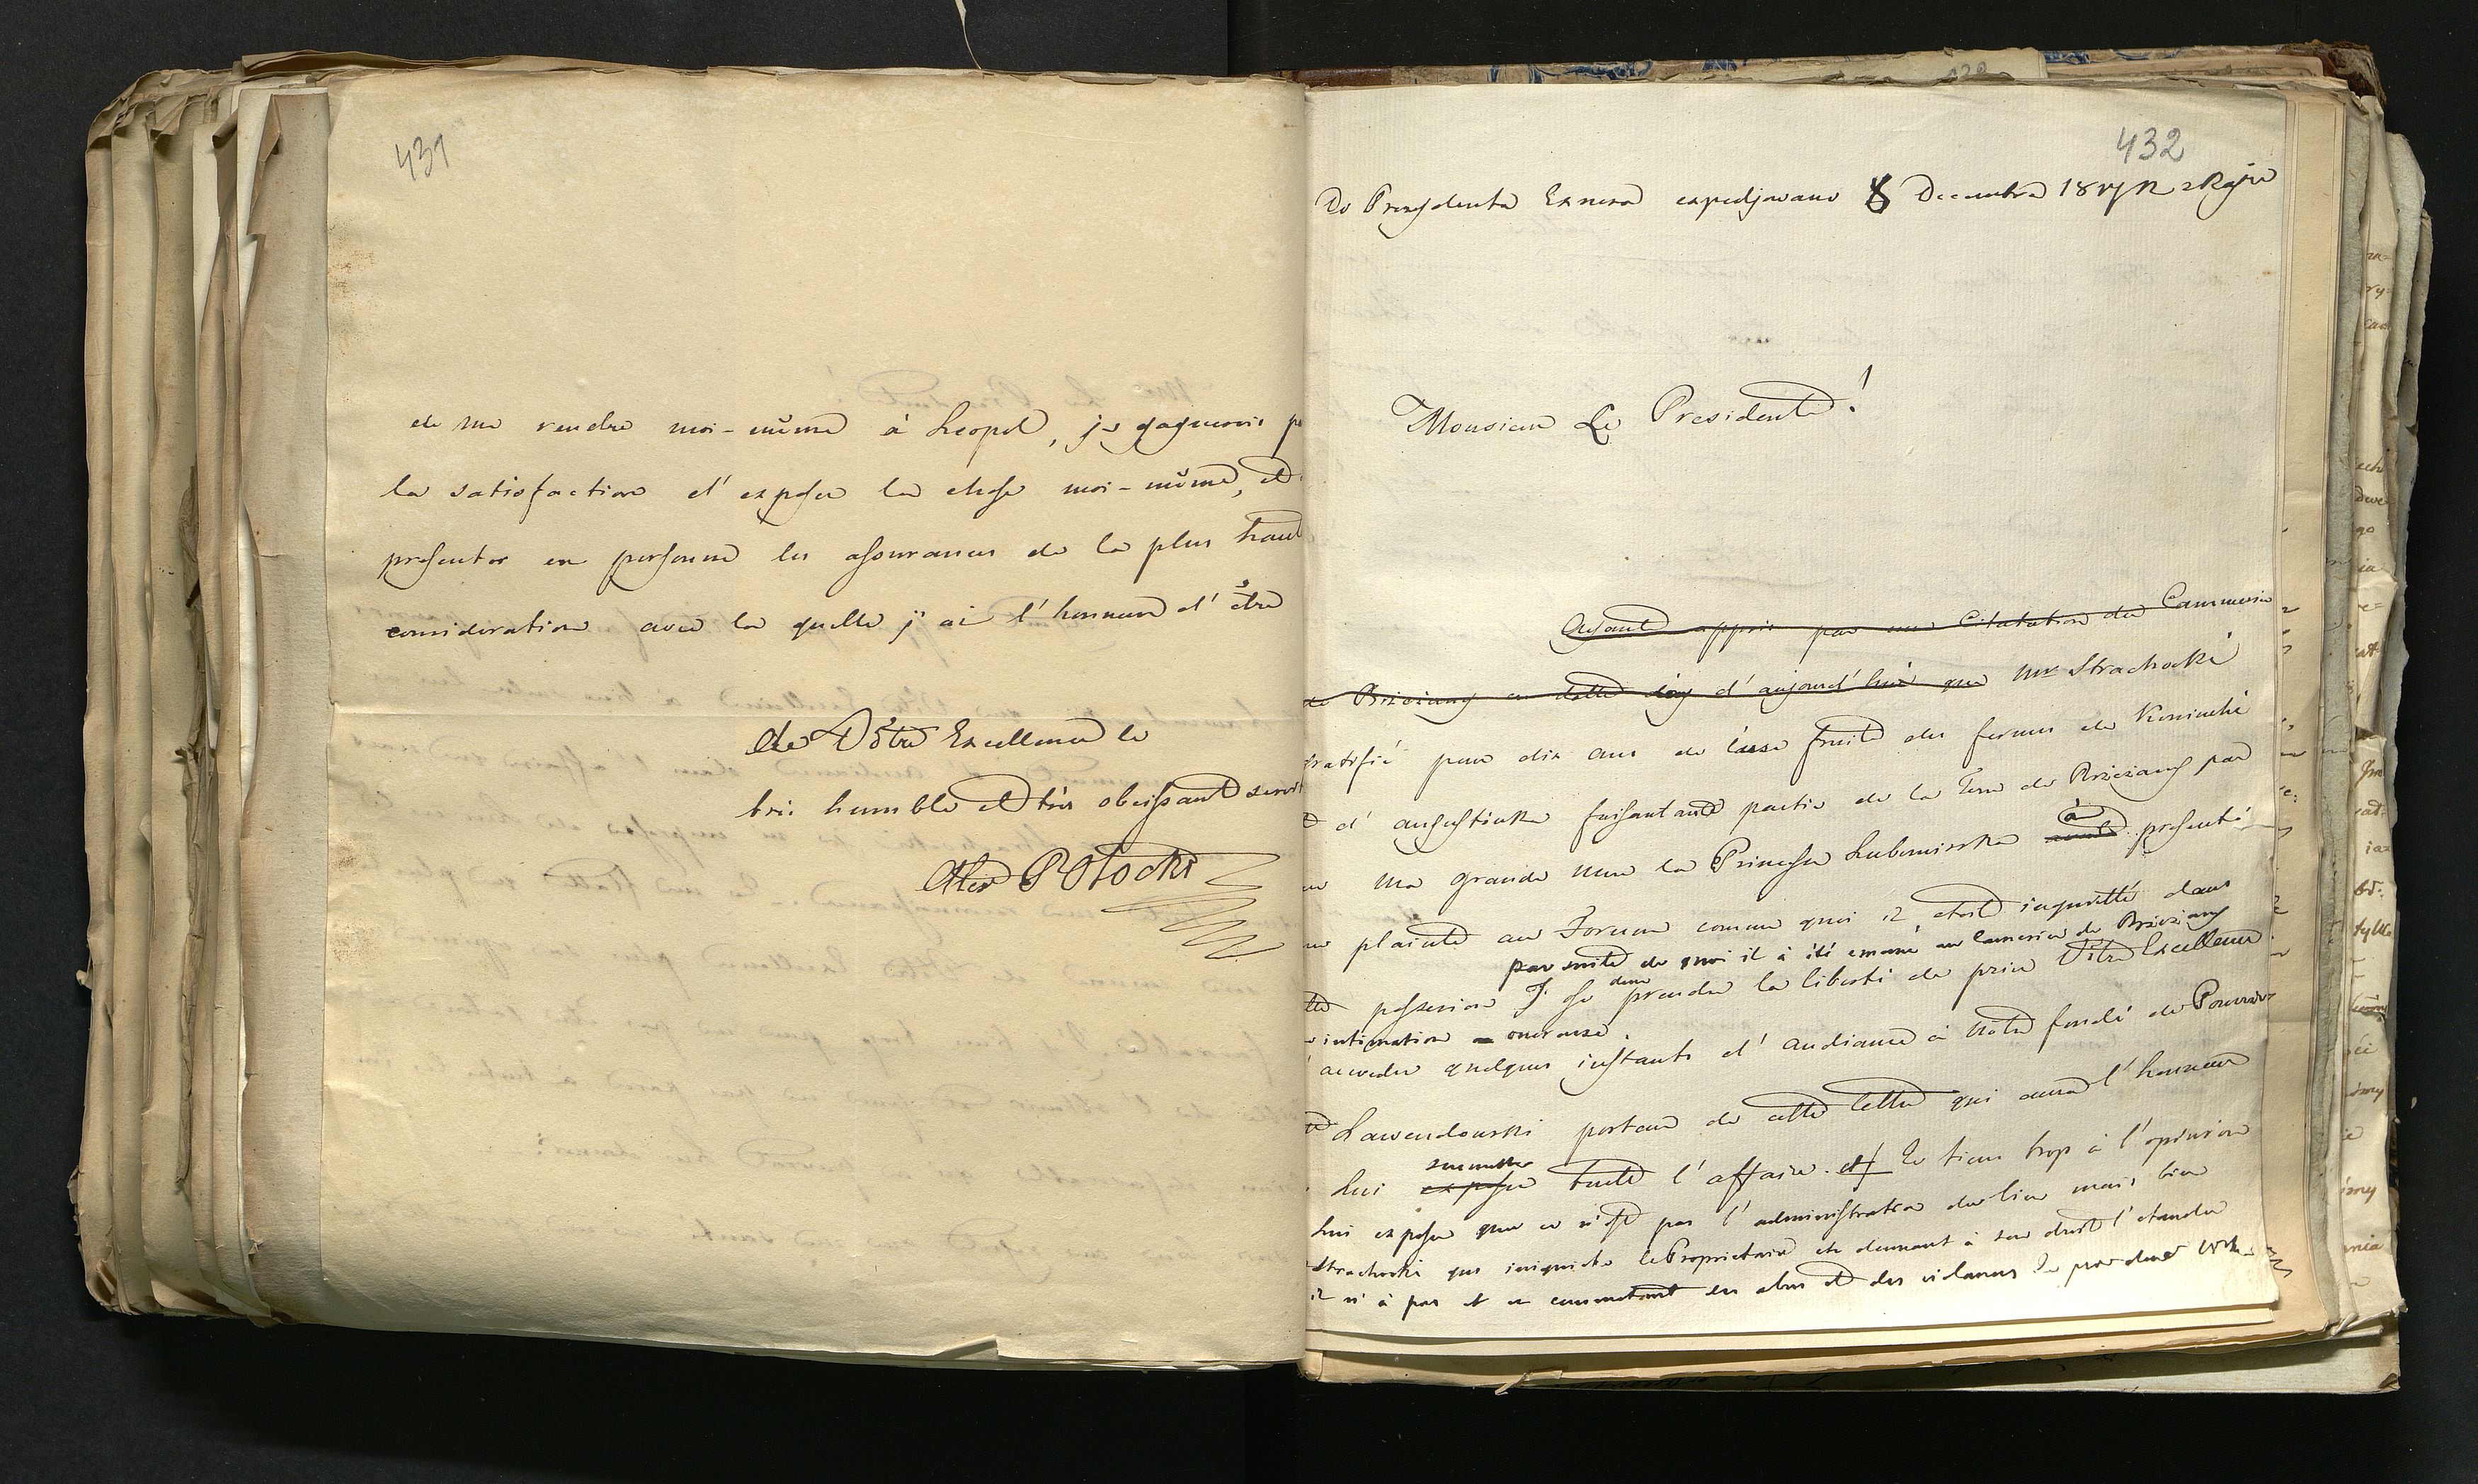 431
de me rendre moi-même à Leopol, je gagnerois
la satisfaction d'exposer la chose moi-même, et
presenter en personne les assurances de la plus haut
consideration avec la quelle j'ai l'honneur d'être
de Vôtre Excellence le
tres humble et très obeissant servit
Alex Potocki
432
Do Prezydenta Exnera expedjowano 8 Decembra z Raju
Monsieur Le President!
Ayant appris par une Citatation du Cammeria
de Brzezany en datte d'aujourd'hui que Mr Strachocki
gratifié pour dix ans de l'uso fruit des fermes de Koniuchi
et d'augustuka faisant partie de la Terre de Brzezany par
ma grande mere la Princesse Lubomirska à presenté
plainte au Forum comme quoi il etoit inquietté dans
par suite de quoi il à été emané au Cameria de Brzezany
possession J'ose donc prendre la liberté de prier Vôtre Excellence
intimation onereuse.
accorder quelques instants d'audiance à Nôtre fondé de Pouvoir
Lawendowski porteur de cette lettre qui aura l'honneur
Lui soumettre exposer toute l'affaire. et Je tiens trop à l'opinion
Lui exposer que ce n'est pas l'administration du lieu mais bien
Strachocki qui inquiete le Proprietaire en donnant à son droit l'etendue
il n'à pas et en commetant des abus et des violances